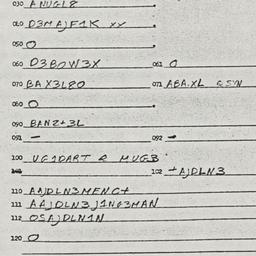 030 ANUGL8
040 D3MAJF1K xx
050 O
060 D3B0W3X 061 O
070 BAX3L80 071 ABA.XL
080 O
090 BANZ+3L
091 – 092 –
100 UG1DART & MUGB
102 +AJDLN3
110 AAJDLN3MENG+
111 AAJDLN3J1NG3HAN
112 OSAJDLN1N
120 O